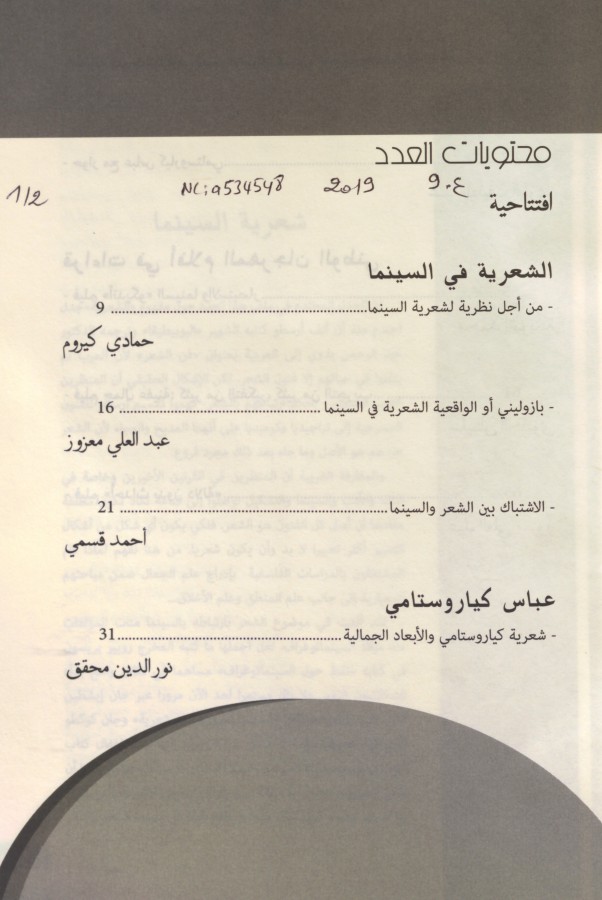 محتويات العدد
1/2 NC: a534548 2019 ع.90
افتتاحية
الشعرية في السينما
- من أجل نظرية لشعرية السينما 9
حمادي كيروم
- بازوليني أو الواقعية الشعرية في السينما 16
عبد العلي معزوز
- الاشتباك بين الشعر والسينما 21
أحمد قسمي
عباس كياروستامي
- شعرية كياروستامي والأبعاد الجمالية 31
نور الدين محقق